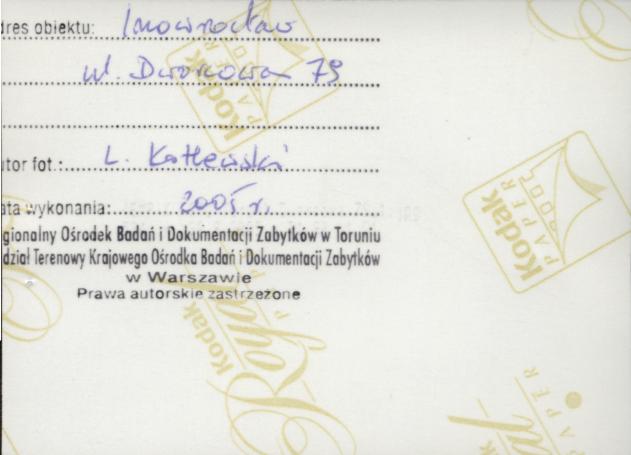 dres obiektu: Inowrocław
ul. Dworcowa 79
utor fot.: L. Kotlewski
ata wykonania: 2005 r.
gionalny Ośrodek Badań i Dokumentacji Zabytków w Toruniu
dział Terenowy Krajowego Ośrodka Badań i Dokumentacji Zabytków
w Warszawie
Prawa autorskie zastrzeżone
Kodak
PAPER
Kodak
PAPER
Kodak
Royal
PAPER
PAPER